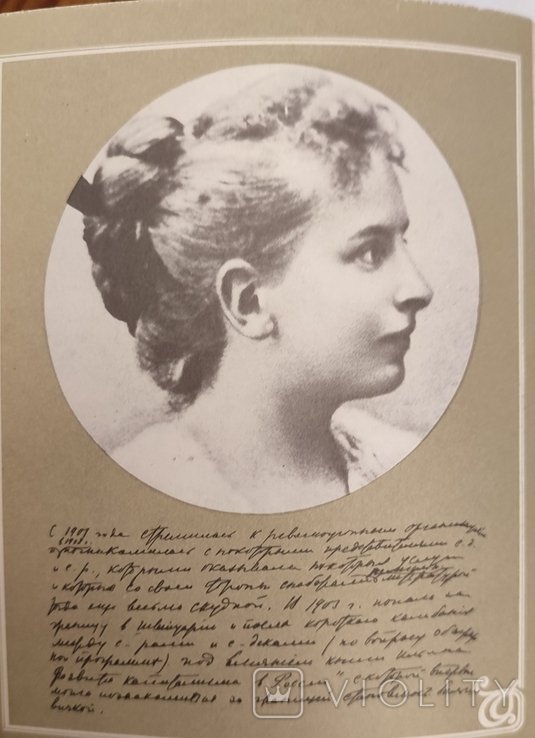 С 1901 года стремилась к революционным организациям
(1902)
познакомилась с некоторыми представителями с.д.
и с.-р., которым оказывала некоторые услуги
и которые со своей стороны снабжали литературой
тогда еще весьма скудной. В 1903 г. попала за
границу в Швейцарию и после короткого колебания
между с-рами и с-деками (по вопросу о
программы) под влиянием книги Ильина
"Развитие капитализма в России", с которой впервые
могла познакомиться за границей, становлюсь
вичкой.
VIOLITY